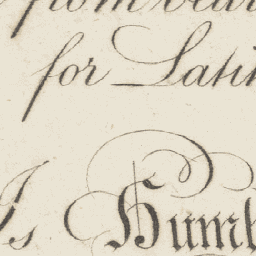 from
for Latin
Is Humb